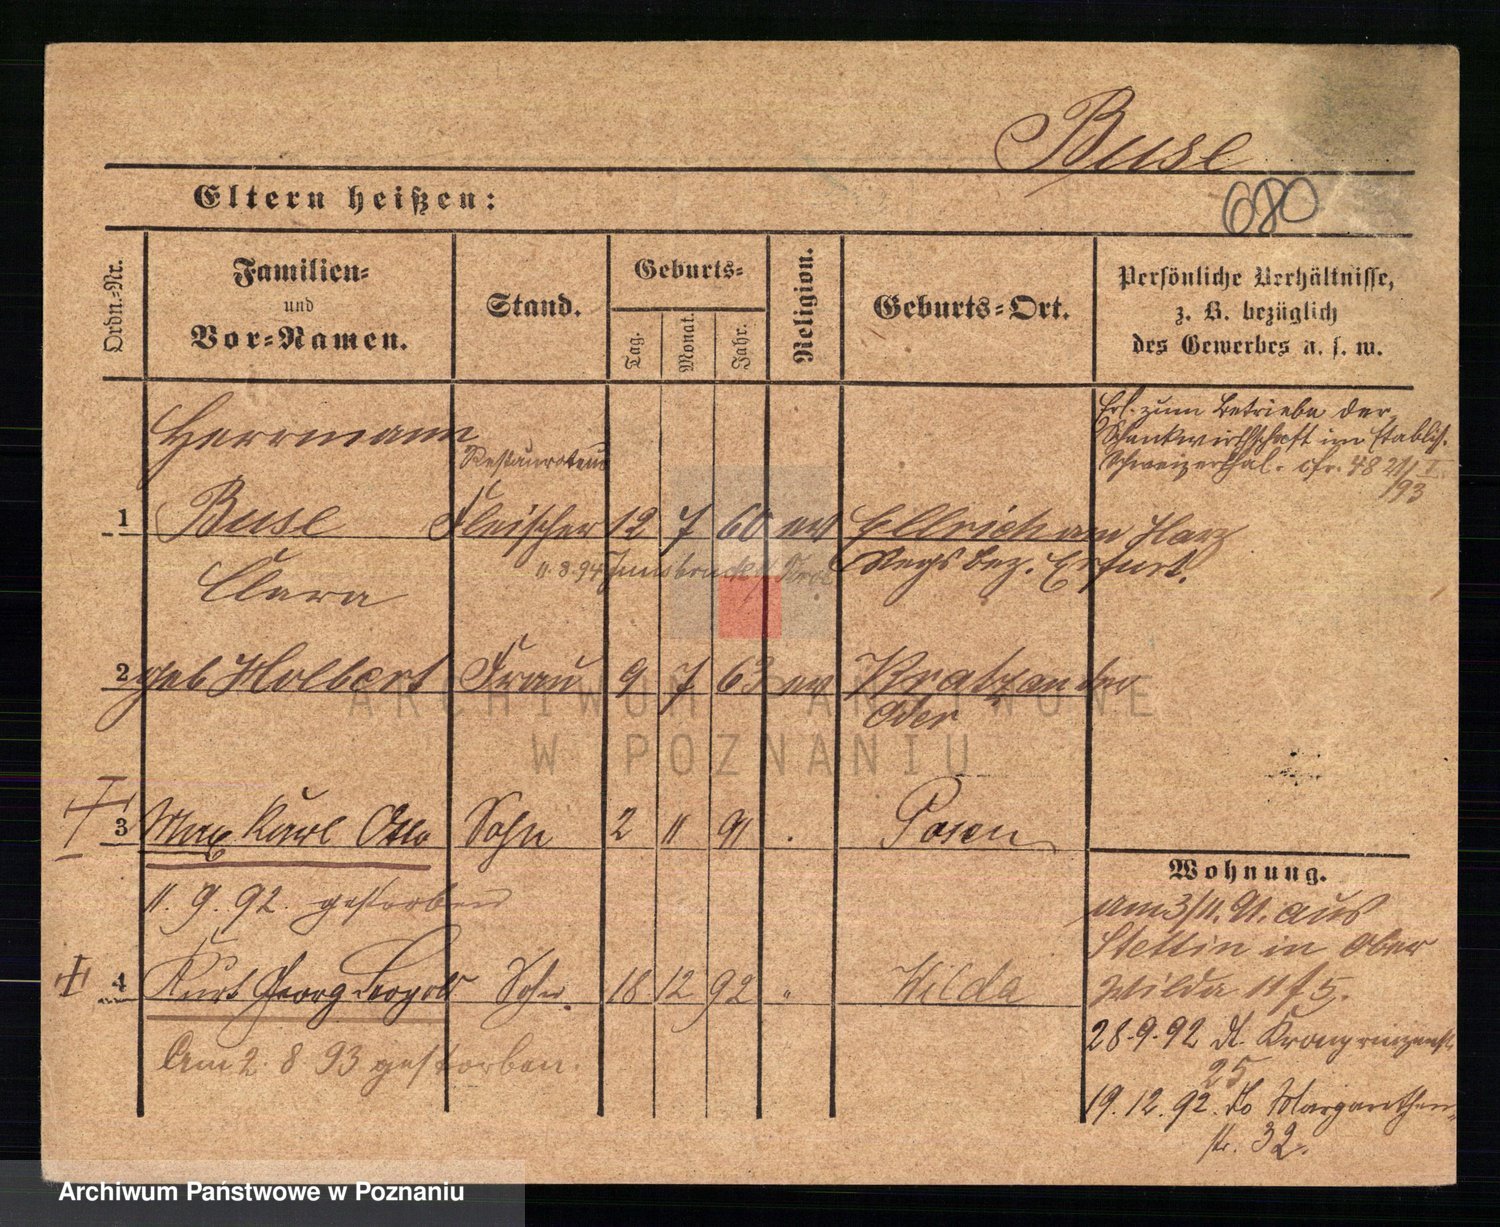 Buse
680
Eltern heißen:
Ordn.-Nr.
Familien-
und
Vor-Namen.
Stand.
Geburts-
Tag.
Monat.
Jahr.
Religion.
Geburts-Ort.
Persönliche Verhältnisse,
z. B. bezüglich
des Gewerbes u. s. w.
Erl. zum Betriebe der
Schankwirthschaft im Etabliss.
Schweizerthal. cfr. 48 21/I
193
Herrmann
Restaurateur
1 Buse Fleischer 12 7 60 ev Ellrich am Harz
11.8.94 Innsbruck
Regsbez. Erfurt.
Clara
2 geb Holbert Frau 9 7 63 ev
Oder
3 Max Karl Otto Sohn 2 11 91 . Posen
11. 9. 92. gestorben
4 Kurt Georg Leopold Sohn. 18 12 92 " Wilda
Am 2. 8 93 gestorben.
Wohnung.
am 3/11. 91. aus
Stettin in Ober
Wilda 11/5.
28.9.92 Kronprinzenst.
25
19.12.92. Do Margarethen-
str. 32.
ARCHIWUM PAŃSTWOWE
W POZNANIU
Archiwum Państwowe w Poznaniu